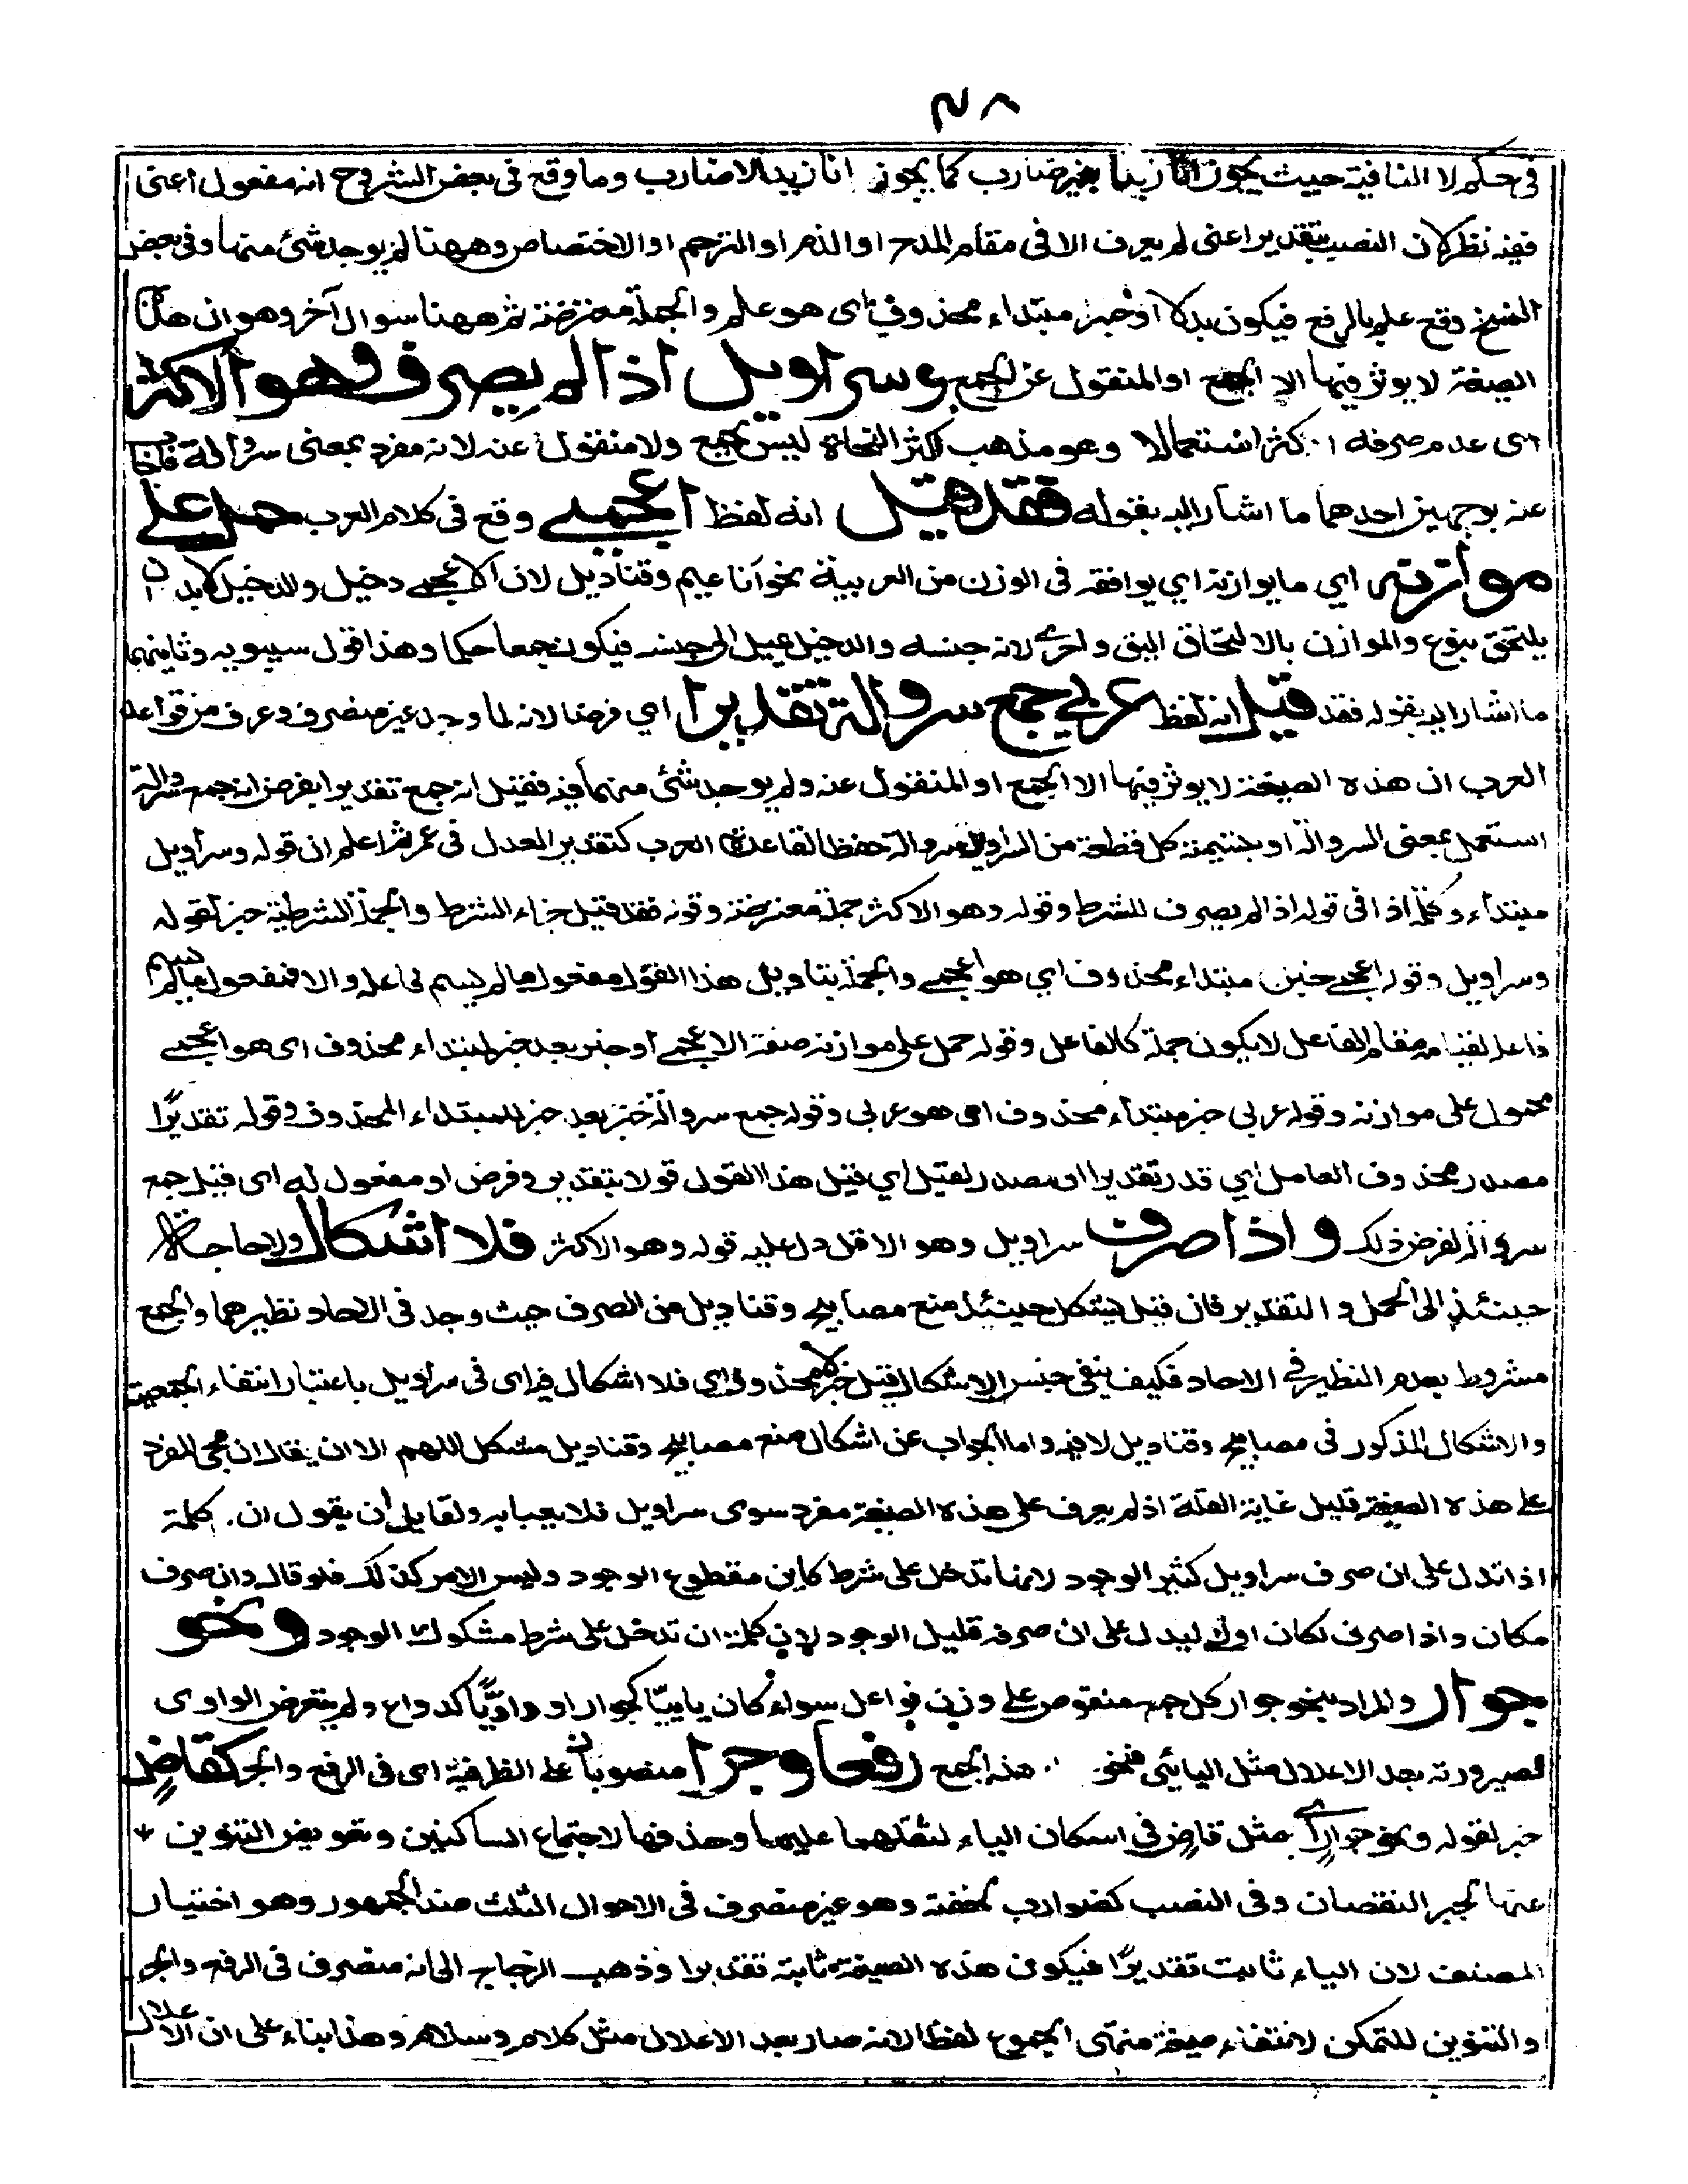 ٣٨
في حكم لا النافية حيث يجوز انا زيدا غير ضارب كما يجوز انا زيدا لا ضارب وما وقع في بعض الشروح انه مفعول اعنى
ففيه نظر لان النصب بتقدير اعنى لم يعرف الا في مقام المدح او الذم او الترحم او الاختصاص وههنا لم يوجد شئ منها وفي بعض
النسخ وقع علم بالرفع فيكون بدلا او خبر مبتداء محذوف اى هو علم والجملة معترضة ثم ههنا سوال آخر وهو ان هذه
الصيغة لا يوثر فيها الا الجمع او المنقول عن الجمع وسراويل اذا لم يصرف وهو الاكثر
اى عدم صرفه اكثر استعمالا وهو مذهب اكثر النحاة ليس بجمع ولا منقول عنه لانه مفرد بمعنى سروالة فاجاب
عنه بوجهين احدهما ما اشار اليه بقوله فقد قيل انه لفظ اعجمي وقع في كلام العرب حمل على
موازنه اي ما يوازنه اي يوافقه في الوزن من العربية نحو اناعيم وقناديل لان الاعجمي دخيل والدخيل لابد ان
يلتحق بنوع والموازن بالالتحاق اليق واحرى لانه جنسه والدخيل يميل الى جنسه فيكون جمعا حكما وهذا قول سيبويه وثانيهما
ما اشار اليه بقوله فقد قيل انه لفظ عربي جمع سروالة تقديرا اى فرضا لانه لما وجد غير منصرف وعرف من قواعد
العرب ان هذه الصيغة لا يوثر فيها الا الجمع او المنقول عنه ولم يوجد شئ منهما فيه فقيل انه جمع تقديرا بفرض انه جمع سروالة
استعمل بمعنى السروالة او بتسمية كل قطعة من السراويل سروالة حفظا لقاعدة العرب كتقدير العدل في عمر ثم اعلم ان قوله وسراويل
مبتداء وكلمة اذا في قوله اذا لم يصرف للشرط وقوله وهو الاكثر جملة معترضة وقوله فقد قيل جزاء الشرط والجملة الشرطية خبر لقوله
وسراويل وقوله اعجمي خبر مبتداء محذوف اي هو اعجمي والجملة بتاويل هذا القول مفعول ما لم يسم فاعله والا فمفعول ما لم يسم
فاعله لقيامه مقام الفاعل لا يكون جملة كالفاعل وقوله حمل على موازنه صفة الاعجمي او خبر بعد خبر لمبتداء محذوف اى هو اعجمي
محمول على موازنه وقوله عربي خبر مبتداء محذوف اى هو عربي وقوله جمع سروالة خبر بعد خبر للمبتداء المحذوف وقوله تقديرًا
مصدر محذوف العامل اي قدر تقديرا او مصدر لقيل اي قيل هذا القول قولا بتقدير وفرض او مفعول له اى قيل جمع
سروالة لفرض ذلك واذا صرف سراويل وهو الاقل دل عليه قوله وهو الاكثر فلا اشكال ولا حاجة
حينئذ الى الحمل والتقدير فان قيل يشكل حينئذ منع مصابيح وقناديل من الصرف حيث وجد في الاحاد نظيرهما والجمع
مشروط بعدم النظير في الاحاد فكيف ينفى جنس الاشكال قيل خبر لا محذوف اي فلا اشكال فيه اى في سراويل باعتبار انتفاء الجمعية
والاشكال المذكور في مصابيح وقناديل لا فيه واما الجواب عن اشكال منع مصابيح وقناديل مشكل اللهم الا ان يقال ان مجئ المفرد
على هذه الصيغة قليل غاية القلة اذ لم يعرف على هذه الصيغة مفرد سوى سراويل فلا يعبا به ولقايل ان يقول ان كلمة
اذا تدل على ان صرف سراويل كثير الوجود لانها تدخل على شرط كاين مقطوع الوجود وليس الامر كذلك فلو قال وان صرف
مكان واذا صرف لكان اولى ليدل على ان صرفه قليل الوجود لان كلمة ان تدخل على شرط مشكوك الوجود ونحو
جوار والمراد بنحو جوار كل جمع منقوص على وزن فواعل سواء كان يائيًا كجوار او واويًا كدواع ولم يتعرض الواوى
لصيرورته بعد الاعلال مثل اليائي فنحو هذه الجمع رفعا وجرا منصوبان على الظرفية اى في الرفع والجر كقاضٍ
خبر لقوله ونحو جوارٍ اى مثل قاضٍ في اسكان الياء لثقلهما عليها وحذفها لاجتماع الساكنين وتعويض التنوين
عنها لجبر النقصان وفي النصب كضوارب لخفته وهو غير منصرف في الاحوال الثلث عند الجمهور وهو اختيار
المصنف لان الياء ثابت تقديرًا فيكون هذه الصيغة ثابتة تقديرا وذهب الزجاج الى انه منصرف في الرفع والجر
والتنوين للتمكن لانتفاء صيغة منتهى الجموع لفظا لانه صار بعد الاعلال مثل كلام وسلام وهذا بناء على ان الاعلال